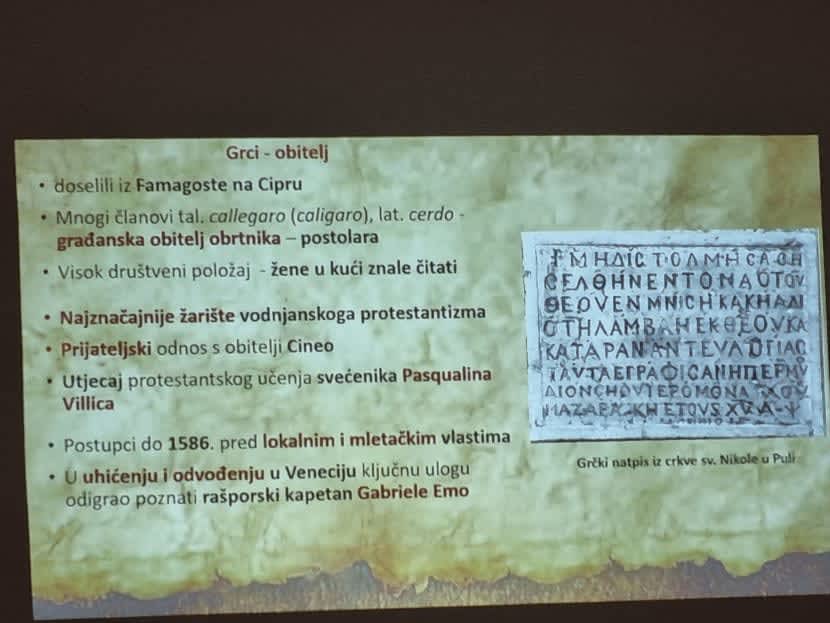 Grci - obitelj
• doselili iz Famagoste na Cipru
• Mnogi članovi tal. callegaro (caligaro), lat. cerdo -
građanska obitelj obrtnika – postolara
• Visok društveni položaj - žene u kući znale čitati
• Najznačajnije žarište vodnjanskoga protestantizma
• Prijateljski odnos s obitelji Cineo
• Utjecaj protestantskog učenja svećenika Pasqualina
Villica
• Postupci do 1586. pred lokalnim i mletačkim vlastima
• U uhićenju i odvođenju u Veneciju ključnu ulogu
odigrao poznati rašporski kapetan Gabriele Emo
ΜΗΔΙΣ ΤΟΛΜΗΣΑΣΗ
ΣΕΛΘΗΝΕΝΤΟΝΑΟΤΟΥ
ΘΕΟΥΕΝΜΝΙΣΗΚΑΚΗΑΔΙ
ΟΤΗΛΑΜΒΑΝΗΕΚΘΕΟΥΚΑ
ΚΑΤΑΡΑΝΑΝΤΕΥΛΟΓΙΑΣ
ΤΑΥΤΑΕΓΡΑΦΙΣΑΝ
Grčki natpis iz crkve sv. Nikole u Puli